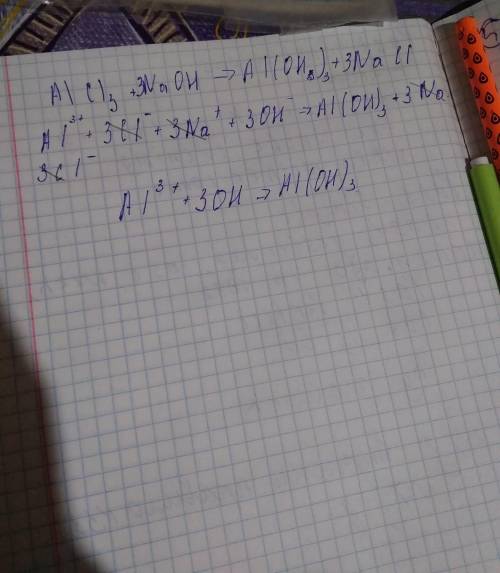 AlCl₃ + 3NaOH → Al(OH)₃ + 3NaCl
Al³⁺ + 3Cl⁻ + 3Na⁺ + 3OH⁻ → Al(OH)₃ + 3Na
3Cl⁻
Al³⁺ + 3OH → Al(OH)₃